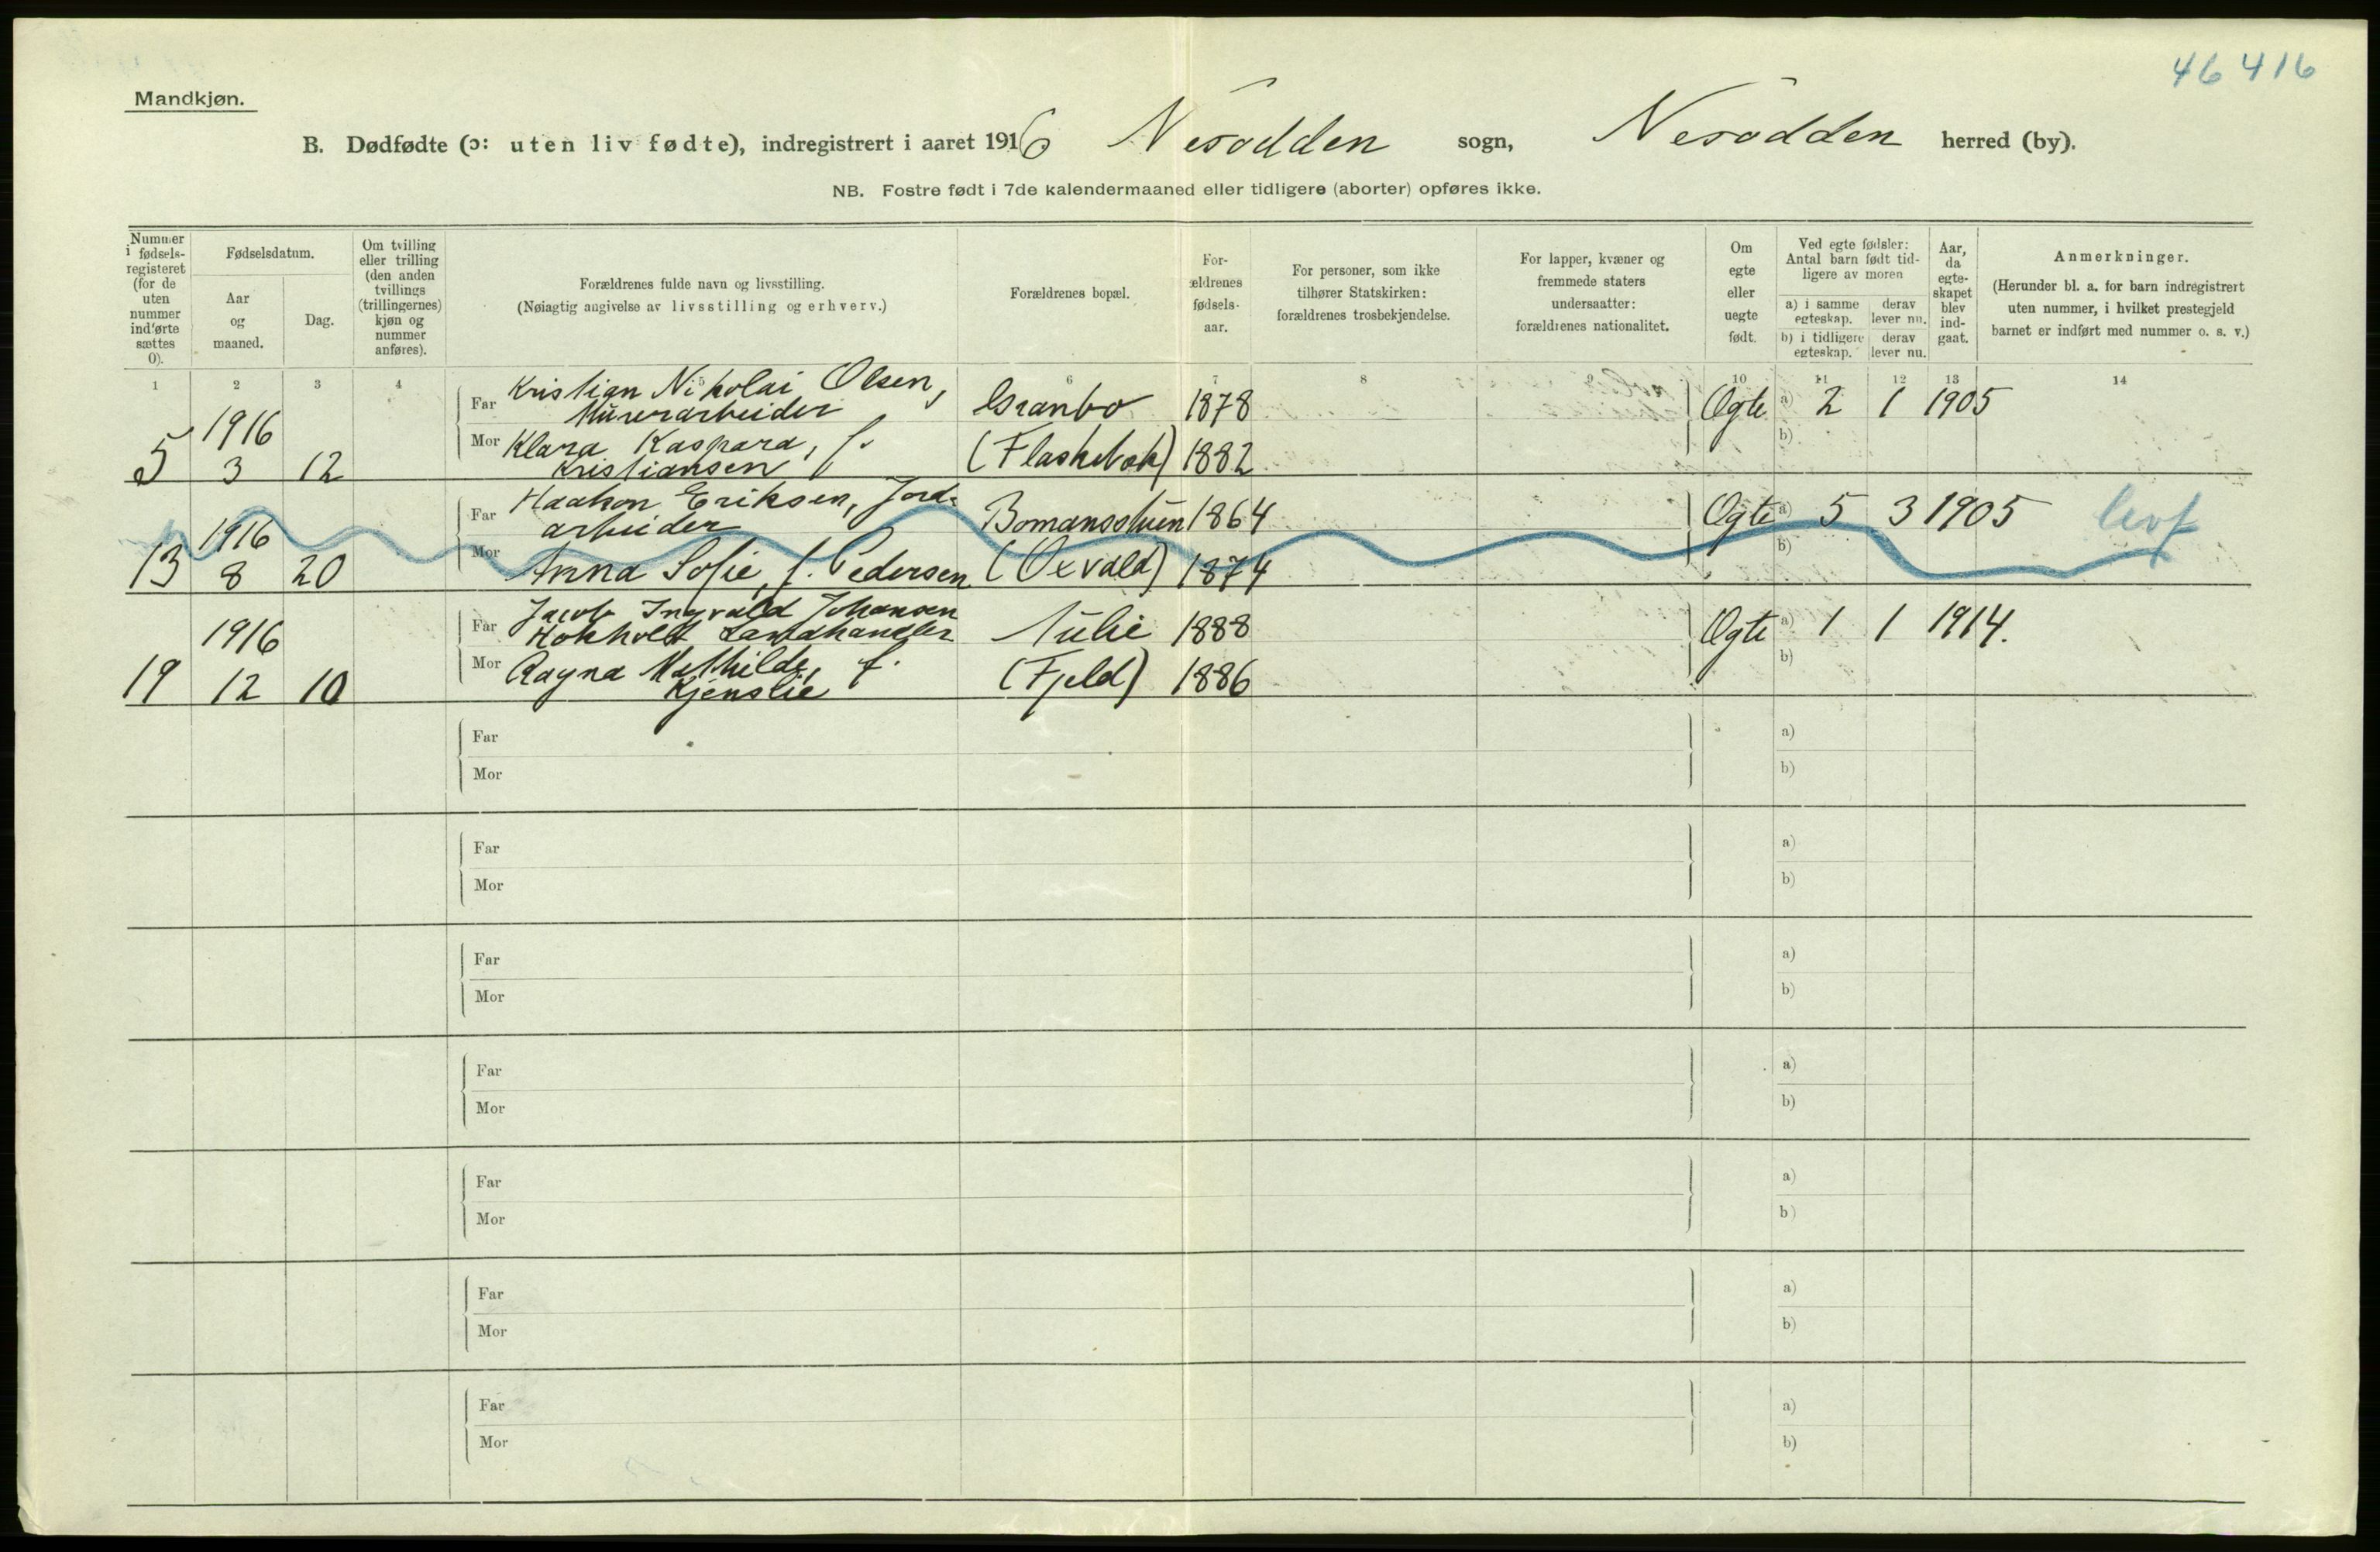 46 416
Mandkjøn.
B. Dødfødte (ɔ: uten liv fødte), indregistrert i aaret 1916 Nesodden sogn, Nesodden herred (by).
NB. Fostre født i 7de kalendermaaned eller tidligere (aborter) opføres ikke.
Nummer i fødselsregisteret (for de uten nummer indførte sættes 0).
Fødselsdatum.
Aar og maaned.
Dag.
Om tvilling eller trilling (den anden tvillings (trillingernes) kjøn og nummer anføres).
Forældrenes fulde navn og livsstilling.
(Nøiagtig angivelse av livsstilling og erhverv.)
Forældrenes bopæl.
Forældrenes fødselsaar.
For personer, som ikke tilhører Statskirken: forældrenes trosbekjendelse.
For lapper, kvæner og fremmede staters undersaatter: forældrenes nationalitet.
Om egte eller uegte født.
Ved egte fødsler: Antal barn født tidligere av moren
a) i samme egteskap. derav lever nu.
b) i tidligere egteskap. derav lever nu.
Aar, da egteskapet blev indgaat.
Anmerkninger.
(Herunder bl. a. for barn indregistrert uten nummer, i hvilket prestegjeld barnet er indført med nummer o. s. v.)
1 2 3 4 5 6 7 8 9 10 11 12 13 14
5 1916 3 12
Far Kristian Nikolai Olsen,
Murerarbeider Granbo 1878 Egte a) 2 1 1905
Mor Klara Kaspara, f.
Kristiansen (Flaskebæk) 1882 b)
13 1916 8 20
Far Haakon Eriksen, Jord-
arbeider Bomansstuen 1864 Egte a) 5 3 1905
Mor Anna Sofie, f. Pedersen (Oxvald) 1874 b)
19 1916 12 10
Far Jacob Ingvald Johansen
Hokholt Landhandler 1888 Egte a) 1 1 1914.
Mor Ragna Mathilde, f.
Kjenslie (Fjeld) 1886 b)
Far a)
Mor b)
Far a)
Mor b)
Far a)
Mor b)
Far a)
Mor b)
Far a)
Mor b)
Far a)
Mor b)
Far a)
Mor b)